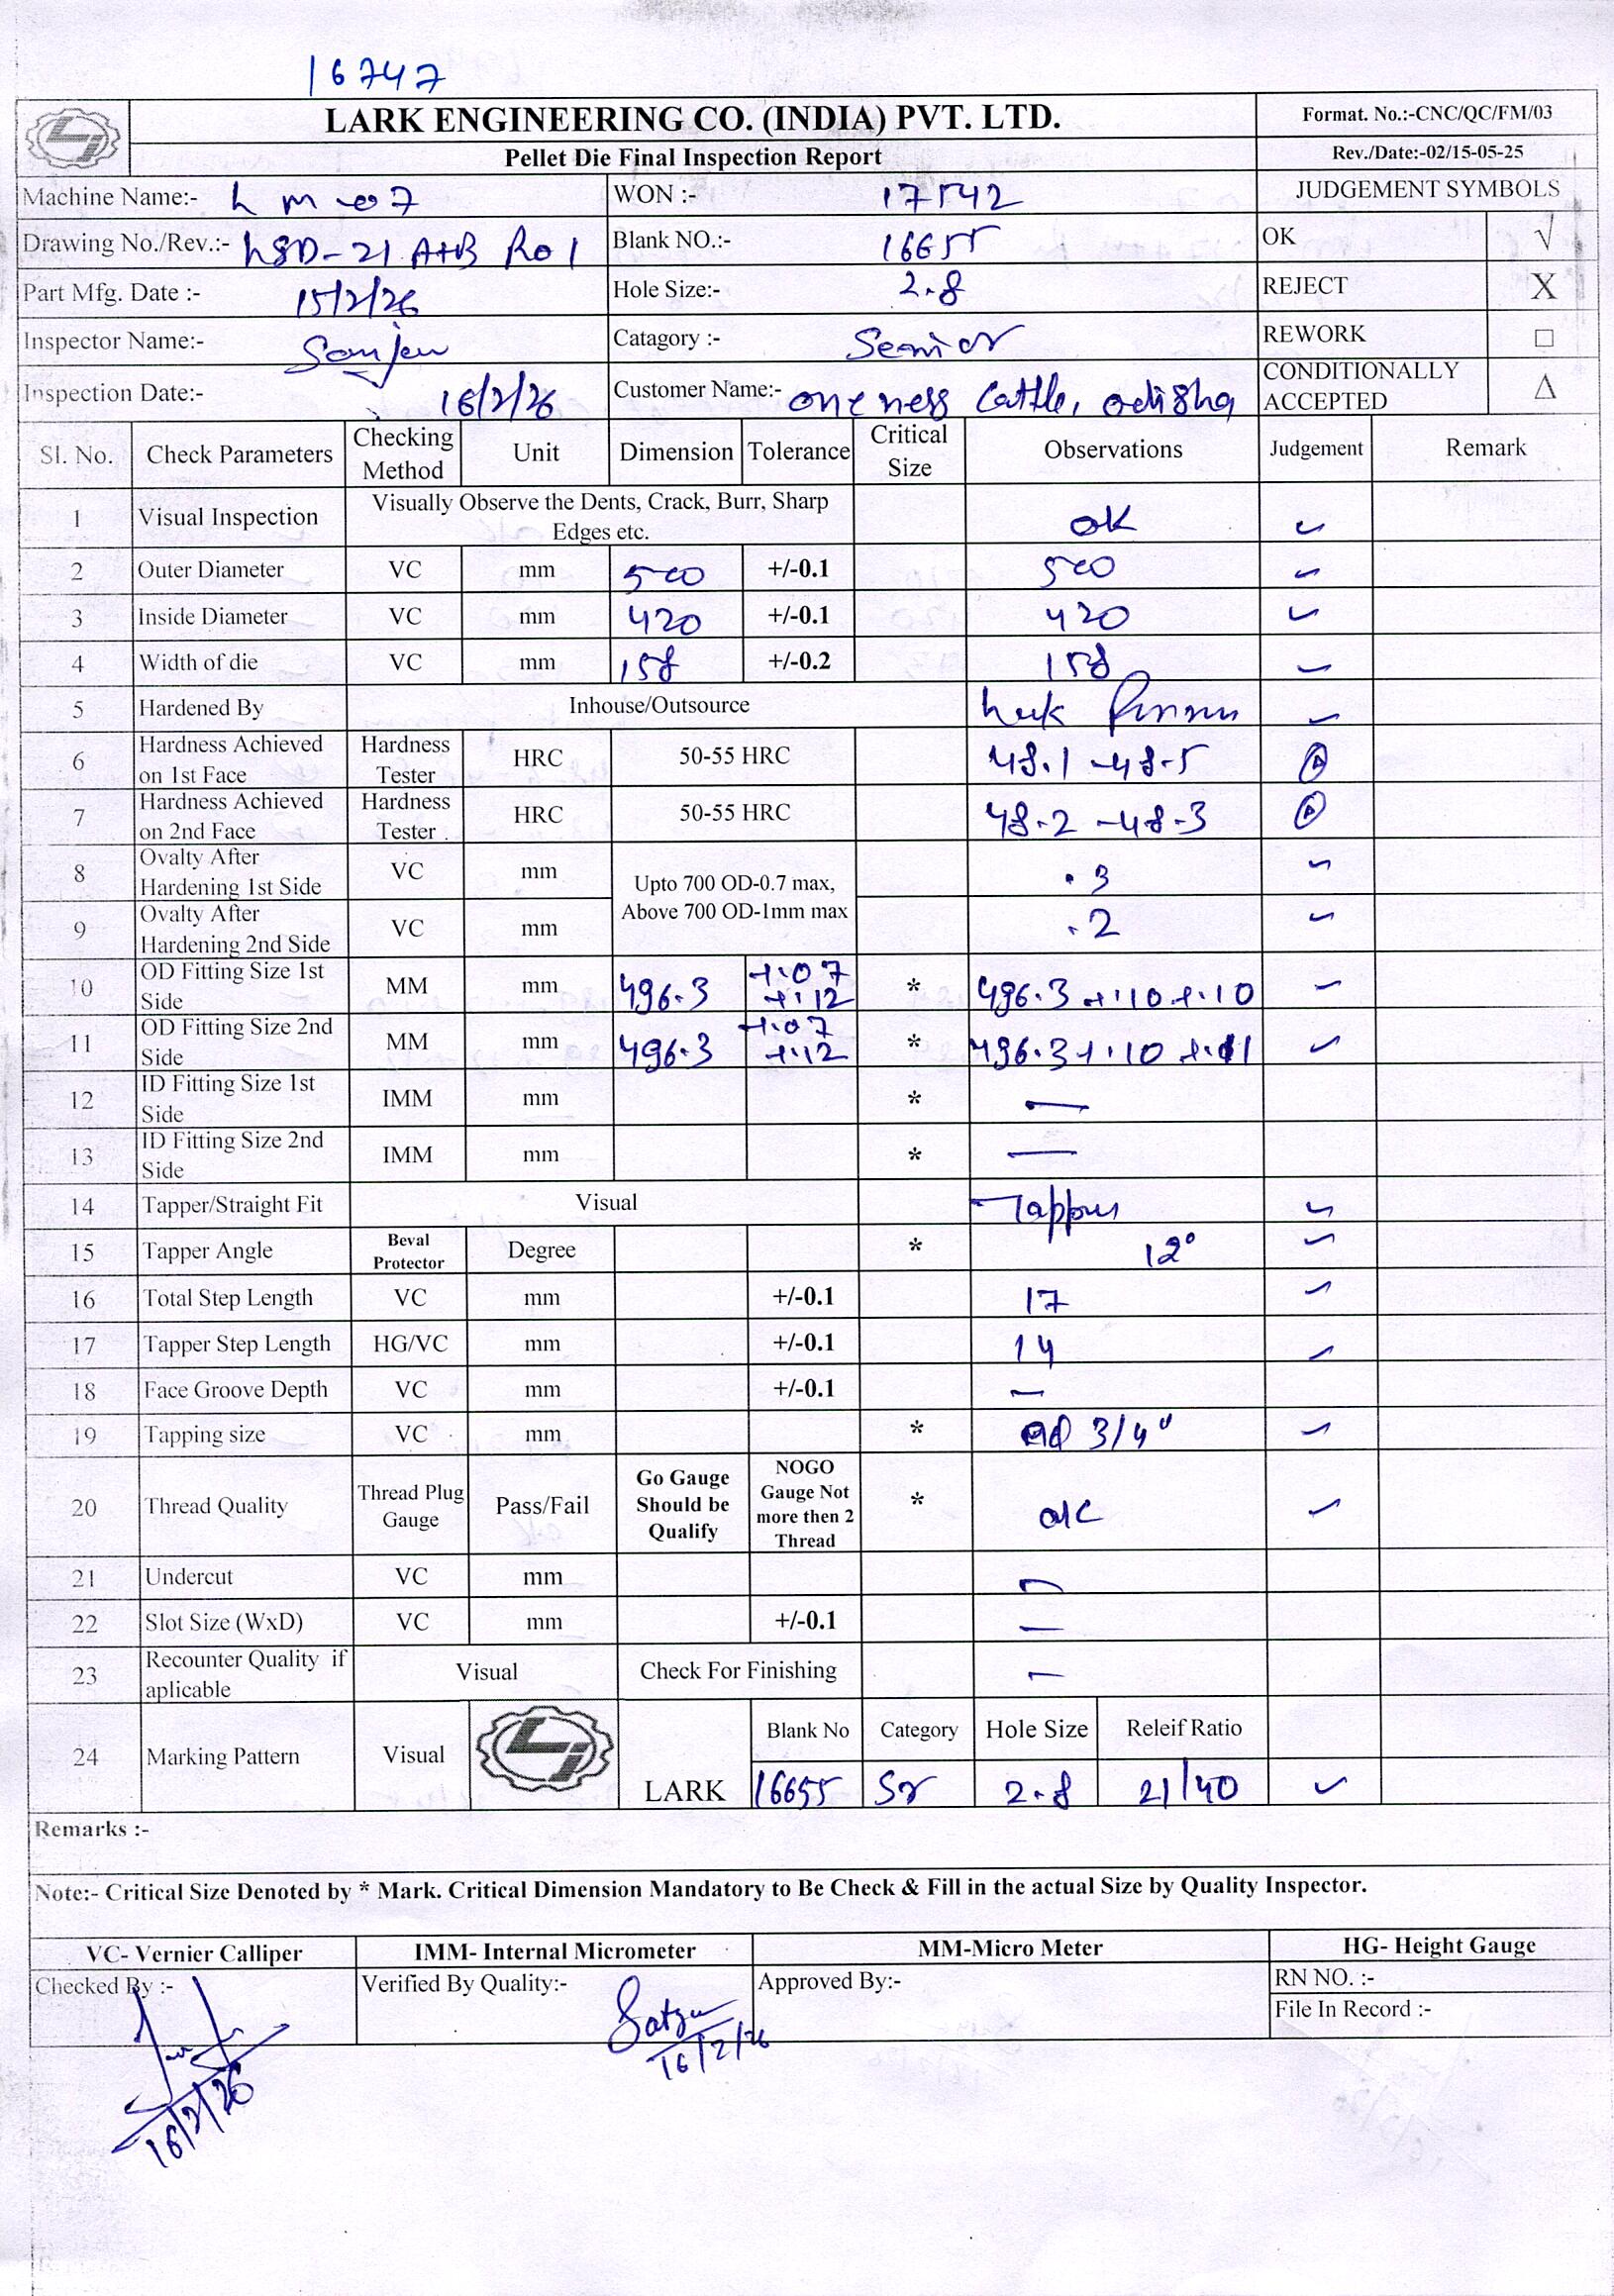 16747
LARK ENGINEERING CO. (INDIA) PVT. LTD.
Format. No.:-CNC/QC/FM/03
Pellet Die Final Inspection Report
Rev./Date:-02/15-05-25
Machine Name:- L m -07 WON :- 17542 JUDGEMENT SYMBOLS
Drawing No./Rev.:- LSD-21 A+B R01 Blank NO.:- 16655 OK √
Part Mfg. Date :- 15/2/26 Hole Size:- 2.8 REJECT X
Inspector Name:- Catagory :- Senior REWORK □
Inspection Date:- 16/2/26 Customer Name:- oneness Cattle, odisha CONDITIONALLY ACCEPTED Δ
Sl. No. Check Parameters Checking Method Unit Dimension Tolerance Critical Size Observations Judgement Remark
1 Visual Inspection Visually Observe the Dents, Crack, Burr, Sharp Edges etc. OK ✓
2 Outer Diameter VC mm 500 +/-0.1 500 ✓
3 Inside Diameter VC mm 420 +/-0.1 420 ✓
4 Width of die VC mm 158 +/-0.2 158 ✓
5 Hardened By Inhouse/Outsource ✓
6 Hardness Achieved on 1st Face Hardness Tester HRC 50-55 HRC 48.1 -48.5
7 Hardness Achieved on 2nd Face Hardness Tester . HRC 50-55 HRC 48.2 -48.3
8 Ovalty After Hardening 1st Side VC mm Upto 700 OD-0.7 max, Above 700 OD-1mm max .3 ✓
9 Ovalty After Hardening 2nd Side VC mm .2 ✓
10 OD Fitting Size 1st Side MM mm 496.3 +.07 +.12 * 496.3 +.10 +.10 ✓
11 OD Fitting Size 2nd Side MM mm 496.3 +.07 +.12 * 496.3 +.10 +.11 ✓
12 ID Fitting Size 1st Side IMM mm * —
13 ID Fitting Size 2nd Side IMM mm * —
14 Tapper/Straight Fit Visual Tapper ✓
15 Tapper Angle Beval Protector Degree * 12° ✓
16 Total Step Length VC mm +/-0.1 17 ✓
17 Tapper Step Length HG/VC mm +/-0.1 14 ✓
18 Face Groove Depth VC mm +/-0.1 —
19 Tapping size VC mm * 3/4" ✓
20 Thread Quality Thread Plug Gauge Pass/Fail Go Gauge Should be Qualify NOGO Gauge Not more then 2 Thread * OK ✓
21 Undercut VC mm —
22 Slot Size (WxD) VC mm +/-0.1 —
23 Recounter Quality if aplicable Visual Check For Finishing —
24 Marking Pattern Visual LARK Blank No Category Hole Size Releif Ratio
16655 Sr 2.8 21/40 ✓
Remarks :-
Note:- Critical Size Denoted by * Mark. Critical Dimension Mandatory to Be Check & Fill in the actual Size by Quality Inspector.
VC- Vernier Calliper IMM- Internal Micrometer MM-Micro Meter HG- Height Gauge
Checked By :- Verified By Quality:- Approved By:- RN NO. :-
File In Record :-
16/2/26
16/2/26